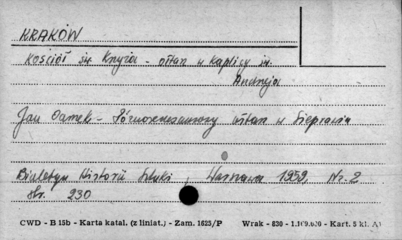 KRAKÓW
Kościół św. Krzyża - ołtarz w kaplicy św.
Andrzeja
Jan Samek - Późnorenesansowy ołtarz w Sieprawiu
Biuletyn Historii Sztuki, Warszawa 1959, Nr. 2
str. 230
CWD - B 15b - Karta katal. (z liniat.) - Zam. 1625/P Wrak - 830 - Kart. 5 kl.